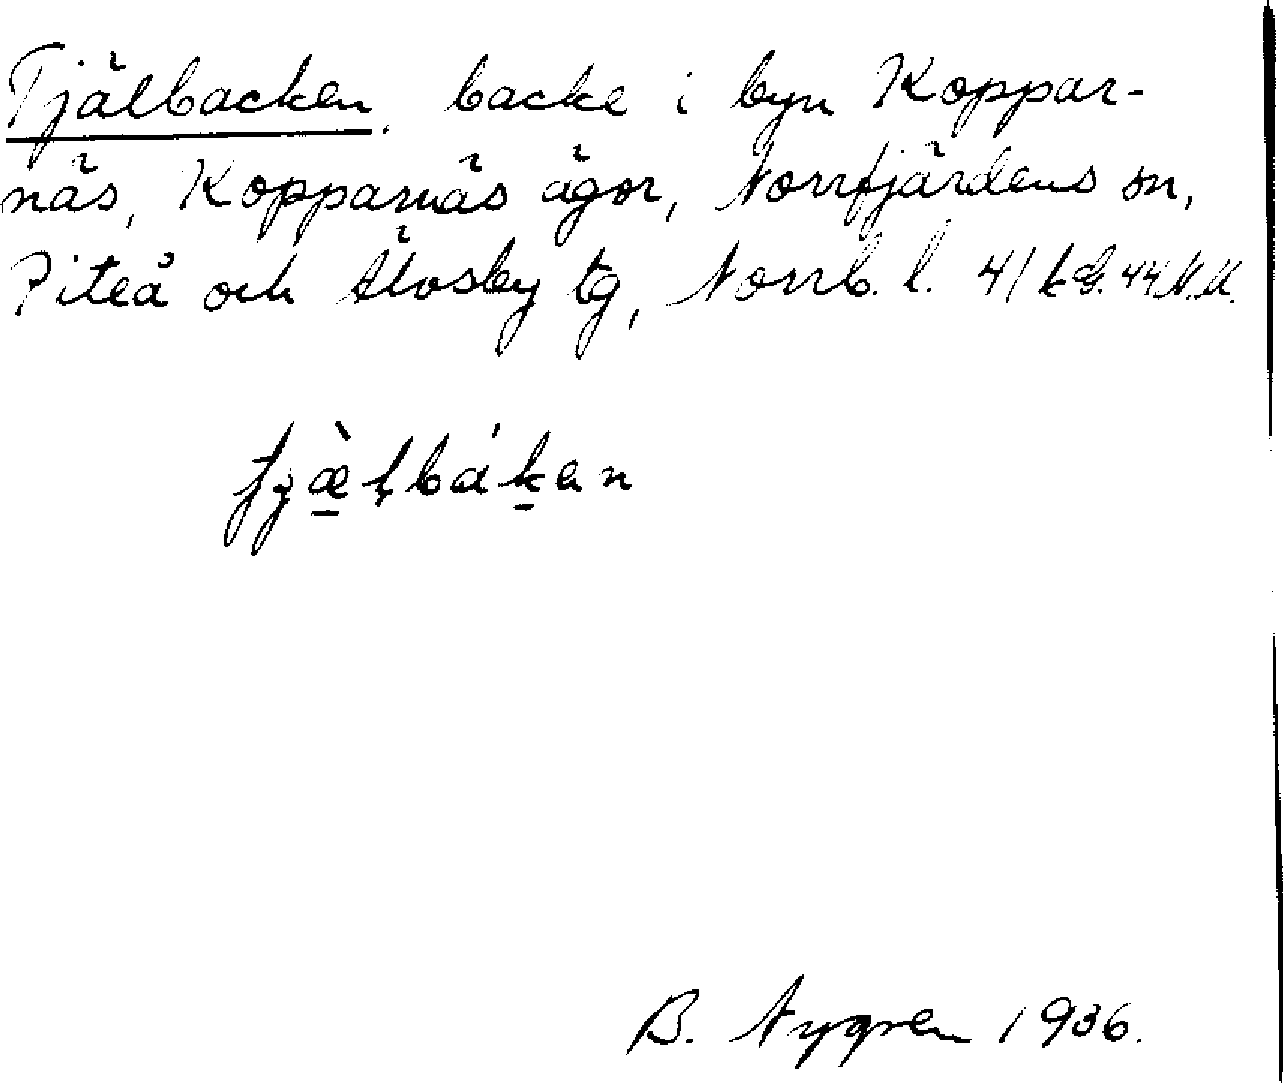 Tjälbacken, backe i byn Koppar-
näs, Kopparnäs ägor, Norrfjärdens sn,
Piteå och Älvsby tg, Norrb. l.
B. Nygren 1936.